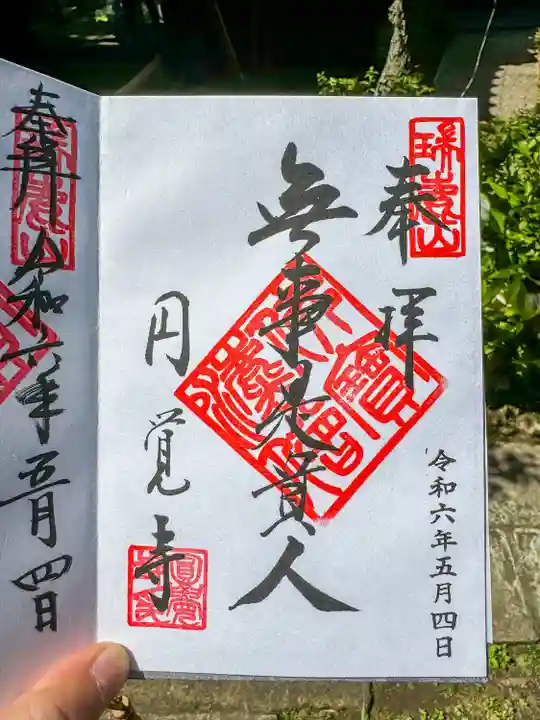 奉拝
令和六年五月四日
瑞鹿山
無事是貴人
円覚寺
奉拝
令和六年五月四日
瑞鹿山